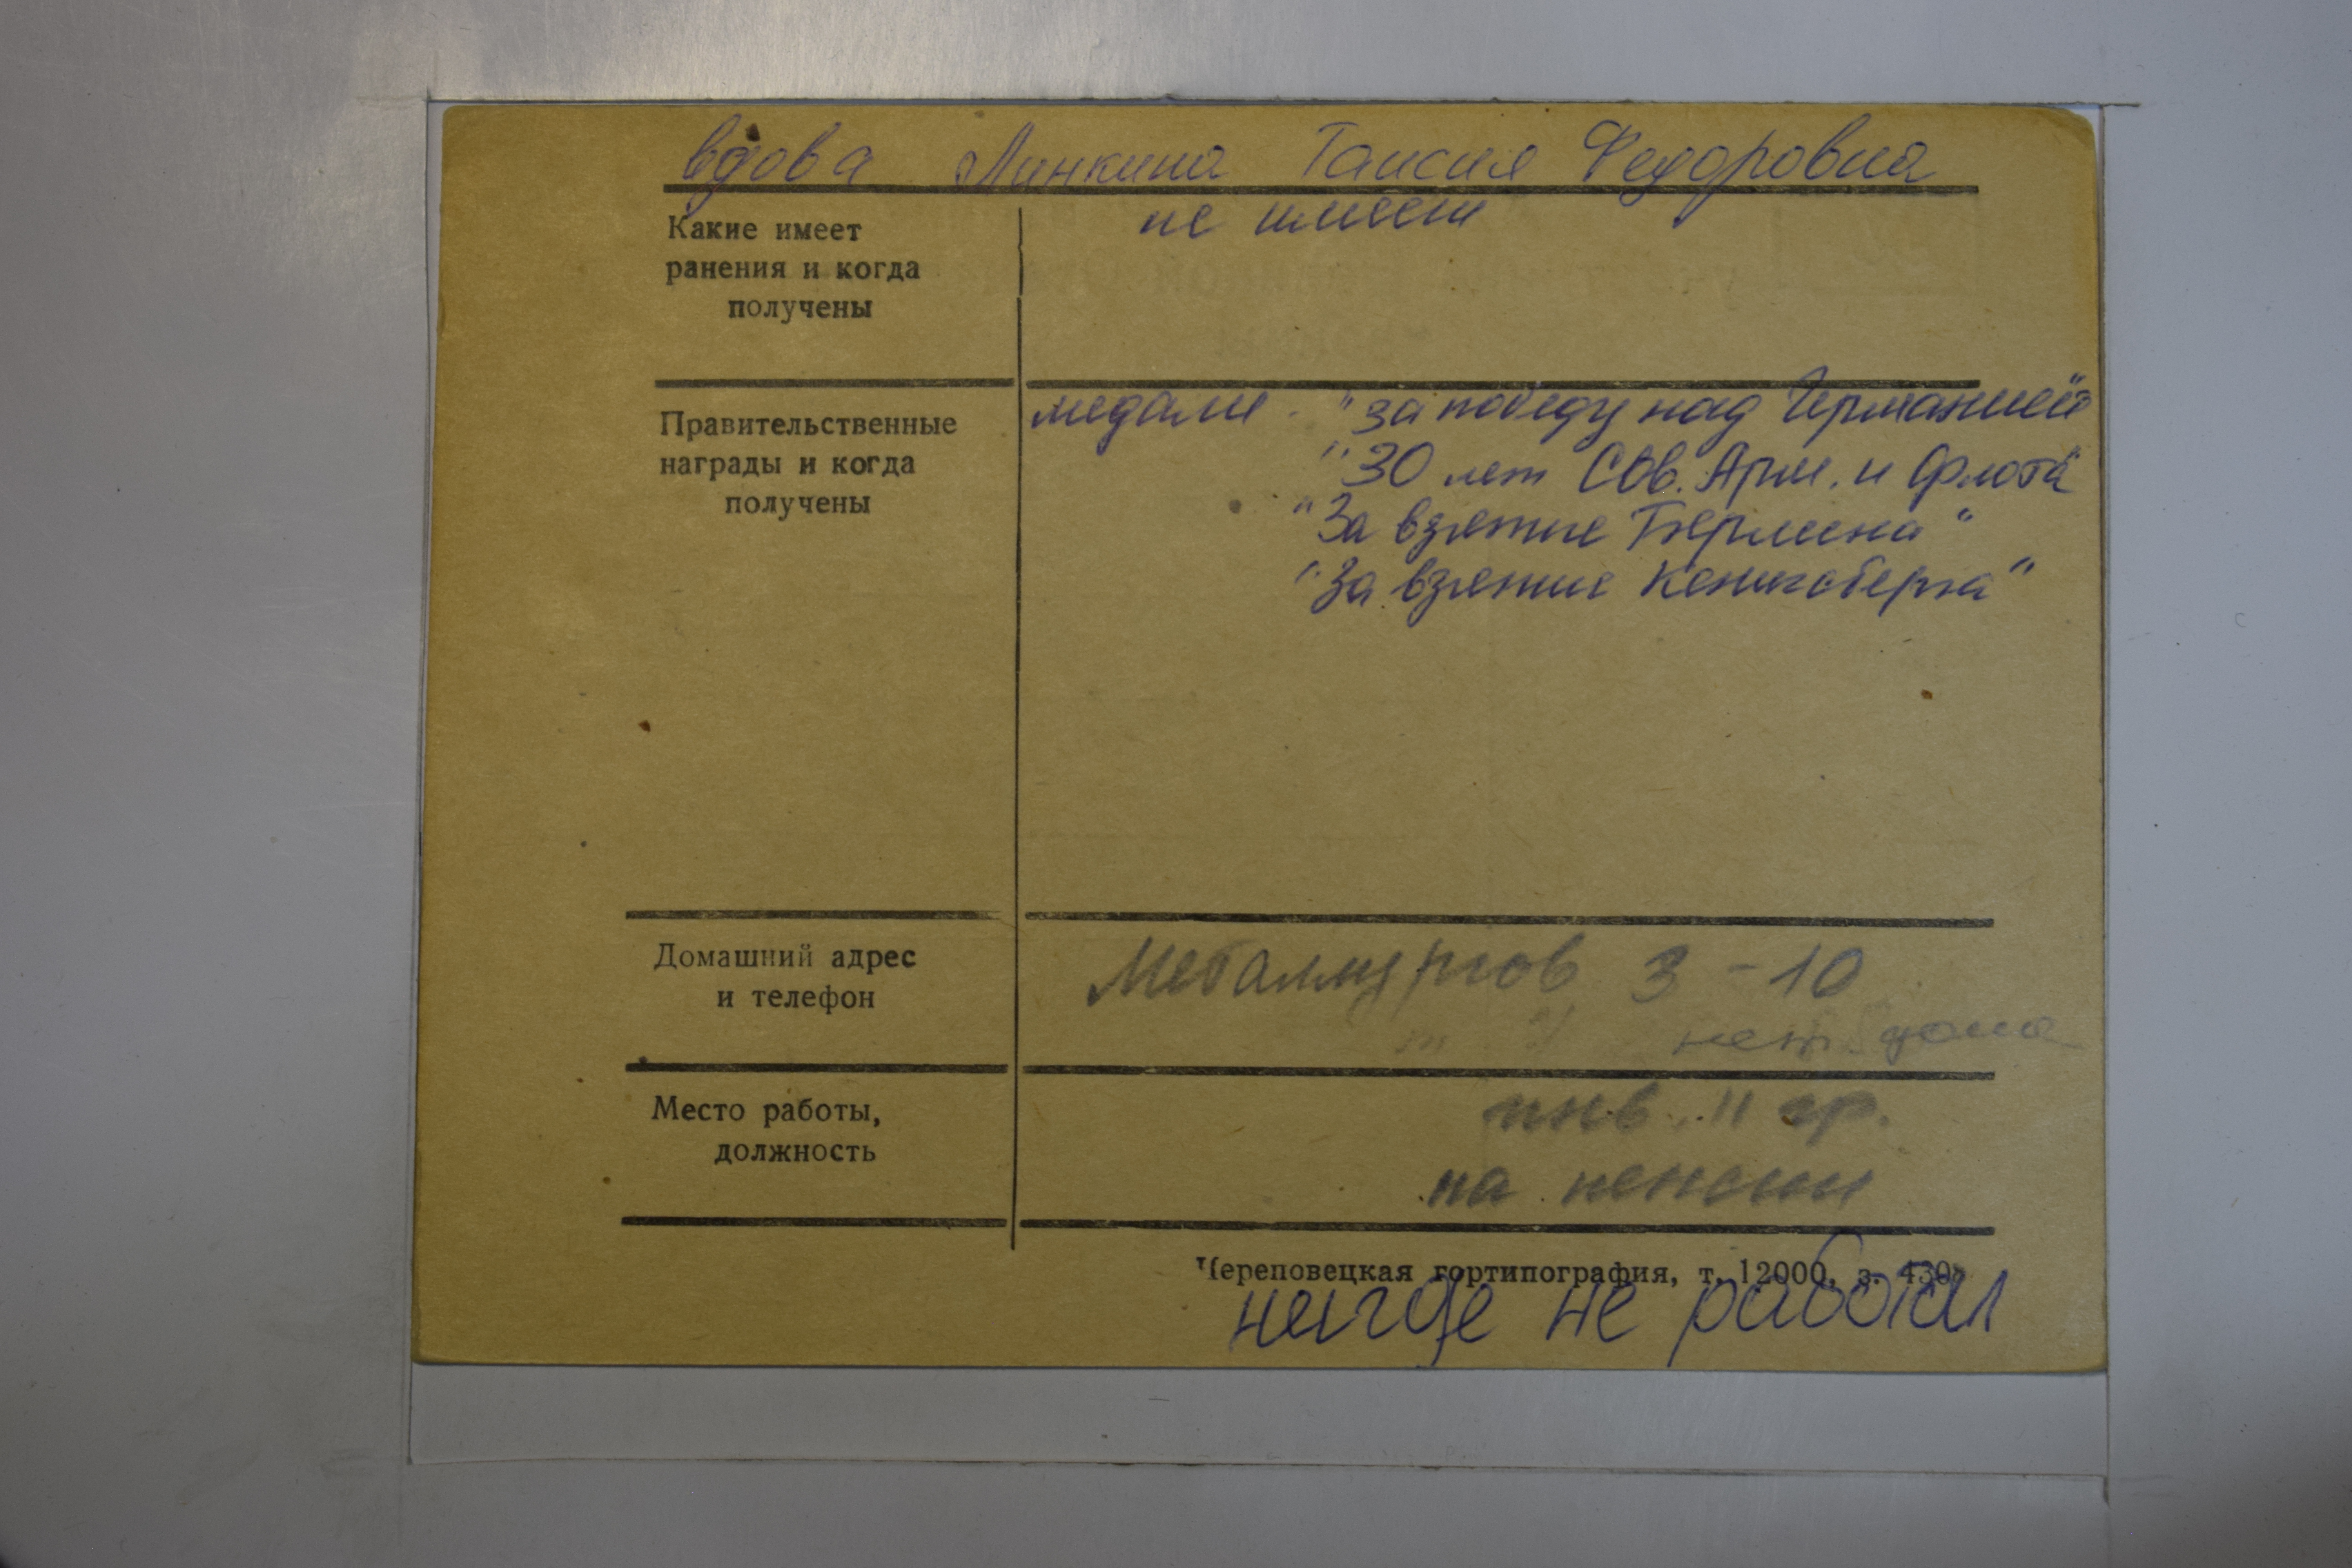 вдова Линкина Таисия Федоровна
Какие имеет
ранения и когда
получены
не имеет
Правительственные
награды и когда
получены
медали - "за победу над Германией"
"30 лет Сов. Арм. и Флота"
"За взятие Берлина"
"За взятие Кенигсберга"
Домашний адрес
и телефон
Металлургов 3-10
нет дома
Место работы,
должность
инв. II гр.
на пенсии
Череповецкая гортипография, т. 12000, з. 430
нигде не работал